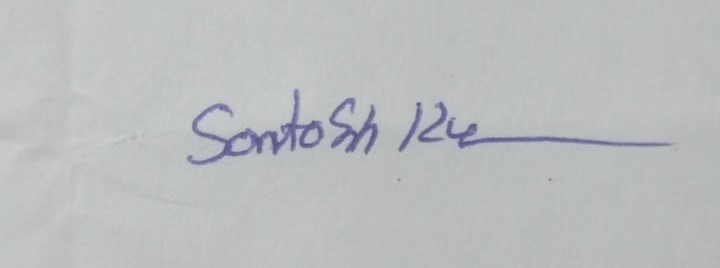 Santosh Ku